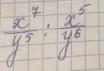 x⁷/y⁵ : x⁵/y⁶